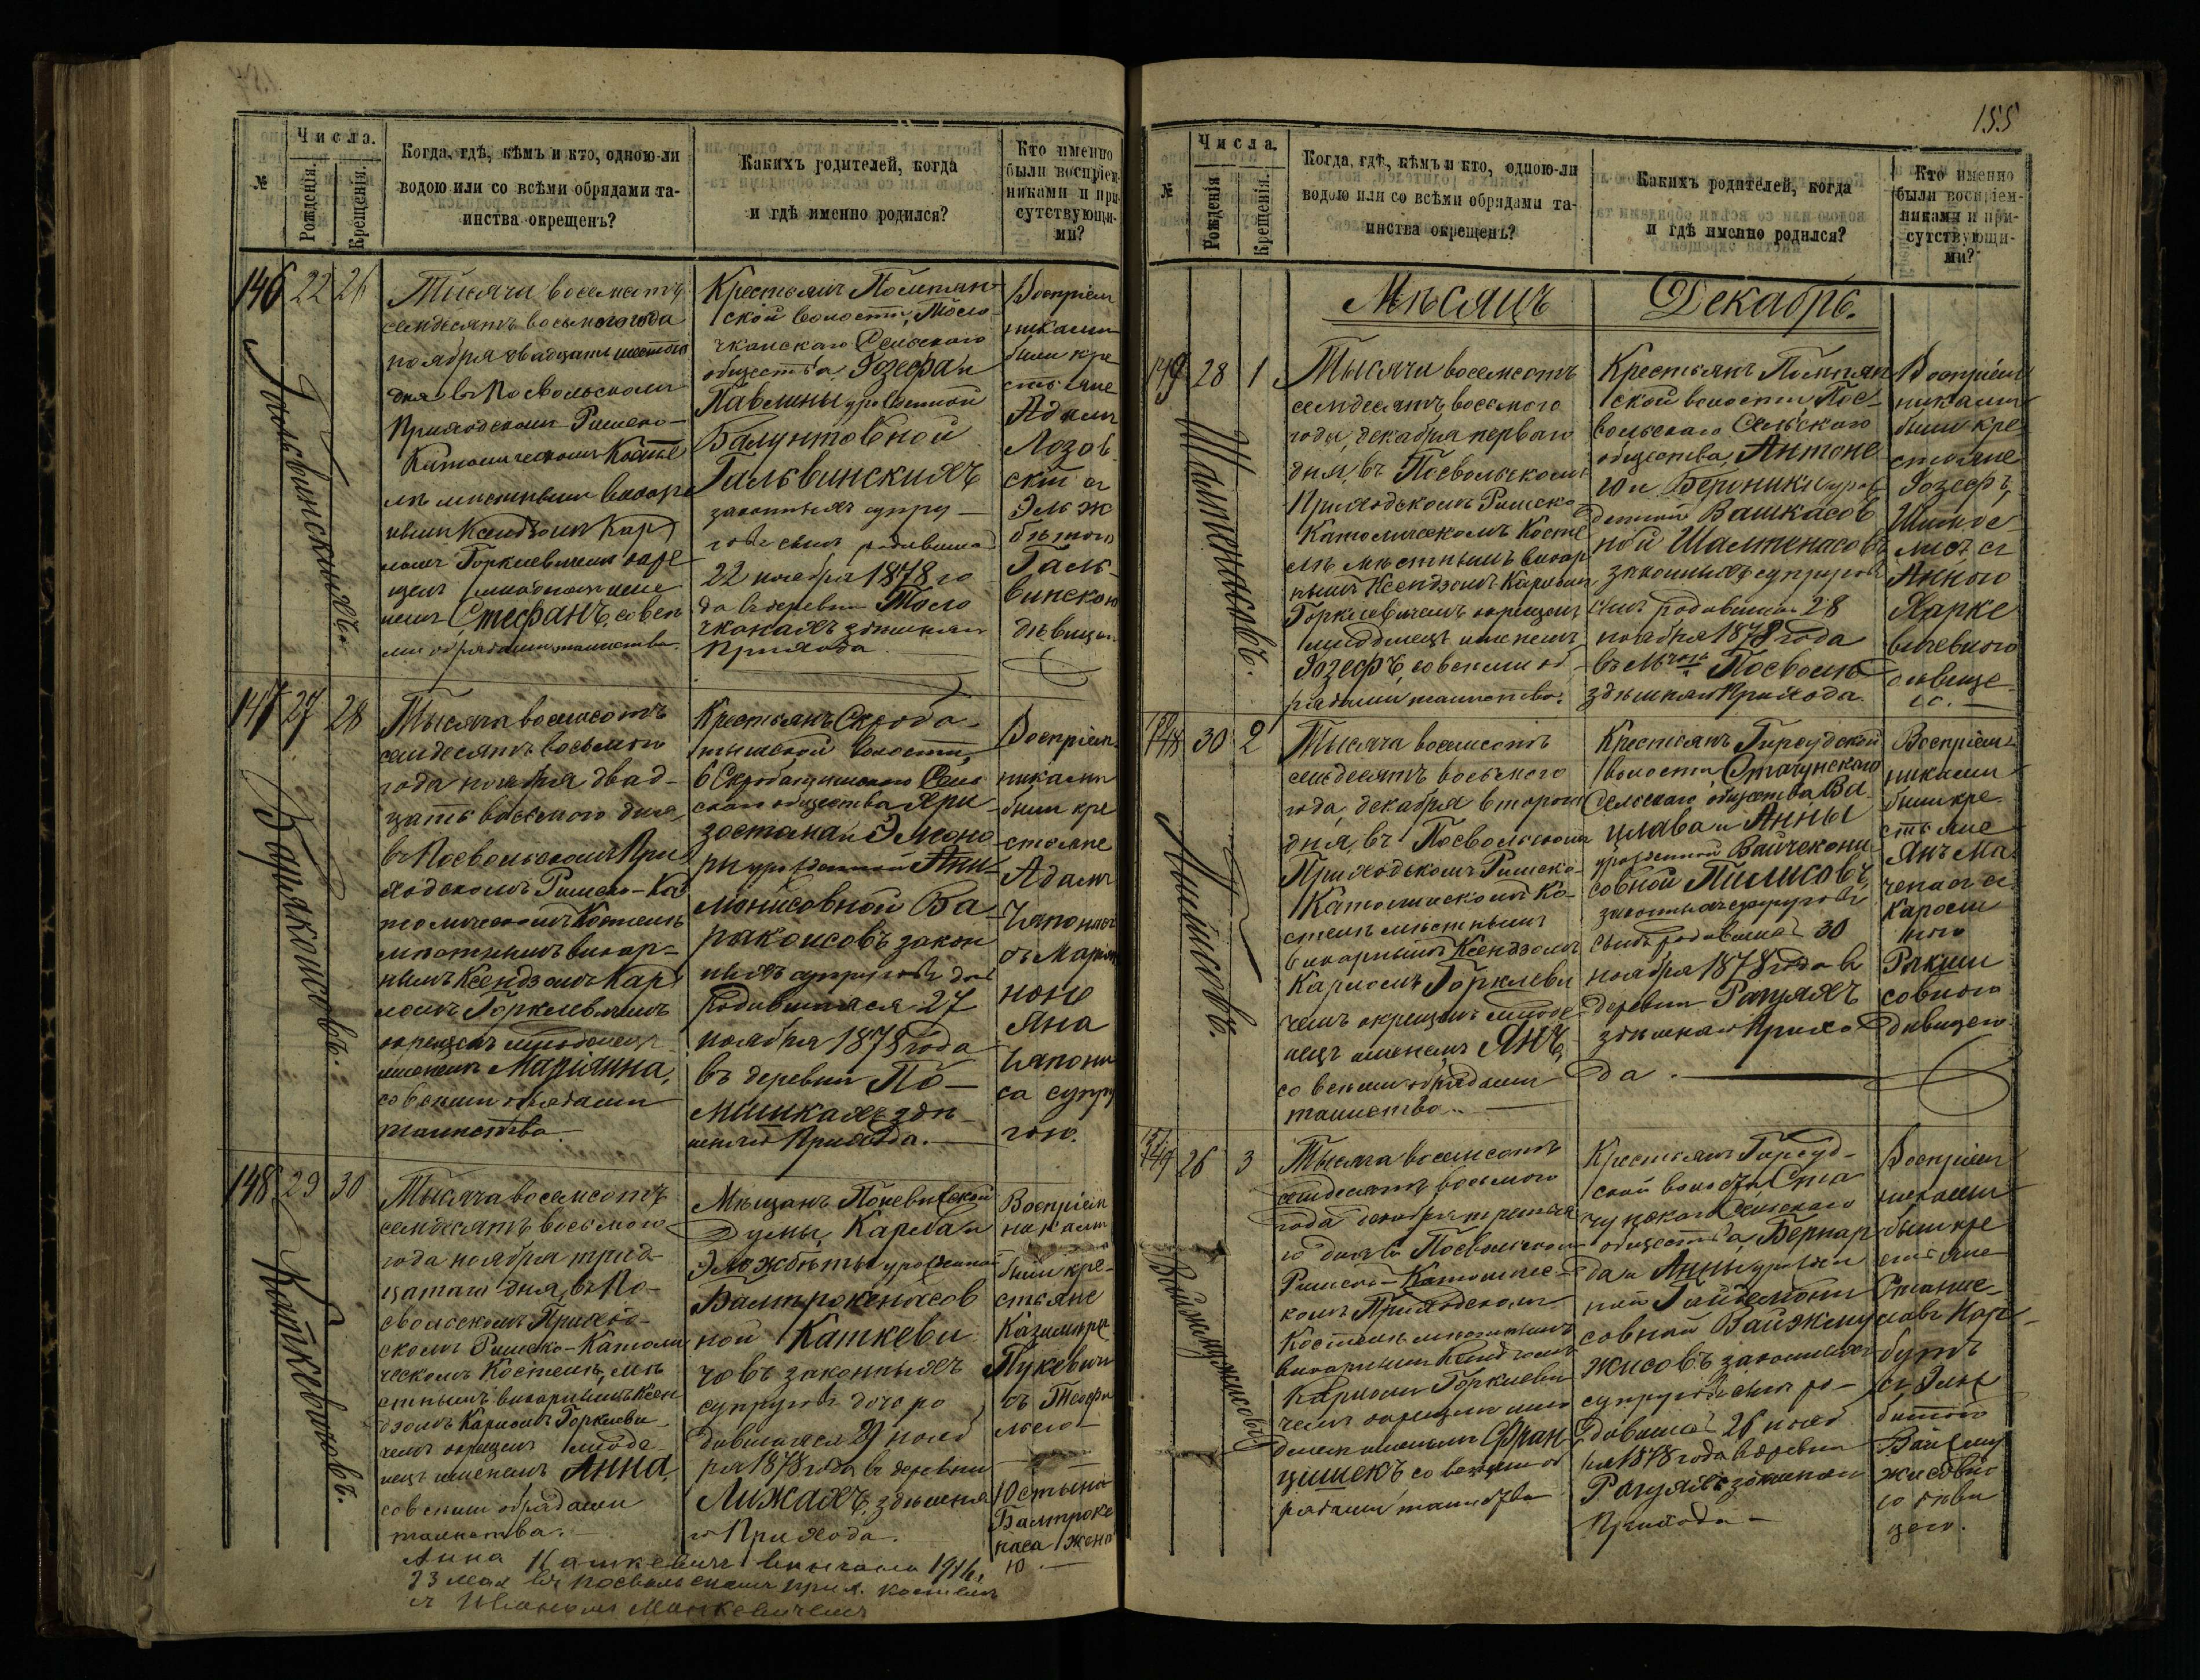 155
Числа.
№
Рожденія.
Крещенія.
Когда, гдѣ, кѣмъ и кто, одною-ли
водою или со всѣми обрядами та-
инства окрещенъ?
Какихъ родителей, когда
и гдѣ именно родился?
Кто именно
были воспріем-
никами и при-
сутствующи-
ми?
146
22
26
Гальвинскихъ.
Тысяча восемьсотъ
семдесятъ восьмого года
ноября двадцать шестого
дня въ Посвольскомъ
Приходскомъ Римско-
Католическомъ Косте
лѣ мѣстнымъ викар
нымъ Ксендзомъ Кар
ломъ Горклевичемъ окре
щенъ младенецъ име
немъ Стефанъ, со всѣ
ми обрядами таинства.
Крестьянъ Помпян
ской волости,
Сельскаго
общества Іозефа и
Павлины урожденной
Балунтовной
Гальвинскихъ
законныхъ супру
говъ сынъ родившійся
22 ноября 1878 го
да въ деревни
здѣшняго
Прихода.
Воспріем
никами
были кре
стьяне
Адамъ
Лозов
скій съ
Эльж
бѣтою
Галь
винскою
дѣвицею
147
27
28
Баракаисовъ.
Тысяча восемсотъ
семдесятъ восьмого
года ноября двад-
цать восьмого дня,
въ Посвольскомъ При
ходскомъ Римско-Ка
толическомъ Костелѣ
мѣстнымъ викар-
нымъ Ксендзомъ Кар
ломъ Горклевичемъ
окрещенъ младенецъ
именемъ Маріянна,
со всѣми обрядами
таинства.
Крестьянъ Скрода-
волости,
Сель
скаго общества Хри
зостома и Элеоно
ры урожденной
Ба
ракаисовъ закон
ныхъ супруговъ дочь
родившаяся 27
ноября 1878 года
въ деревни По-
здѣ
шняго Прихода.
Воспріем
никами
были кре
стьяне
Адамъ
съ Марія
ною
Яна
са супру
гою.
148
29
30
Каткевичовъ.
Тысяча восемсотъ
семдесятъ восьмого
года ноября трид-
цатаго дня, въ По-
свольскомъ Приход-
скомъ Римско-Католи
ческомъ Костелѣ, мѣ
стнымъ викарнымъ Ксен
дзомъ Карломъ Горклеви
чемъ окрещенъ младе
нецъ именемъ Анна,
со всѣми обрядами
таинства.
Мѣщанъ Поневѣжской
Думы, Карла и
Эльжбѣты урожденной
Балтрокенасов
ной Каткеви
човъ законныхъ
супруговъ дочь ро
дившаяся 29 нояб
ря 1878 года въ деревни
Лижахъ, здѣшня
го Прихода.
Воспріем
никами
были кре-
стьяне
Казимиръ
Пукевичъ
съ Теофи
лею
Юстына
Балтроке
наса жено
ю.
Анна Кашкевичъ 1914 г.
23 мая въ Посвольскомъ прих. костелѣ
съ Иваномъ Манкевичемъ
Числа.
№
Рожденія
Крещенія.
Когда, гдѣ, кѣмъ и кто, одною-ли
водою или со всѣми обрядами та-
инства окрещенъ?
Какихъ родителей, когда
и гдѣ именно родился?
Кто именно
были воспріем-
никами и при-
сутствующи-
ми?
Мѣсяцъ Декабрь.
149
28
1
Шалтенасовъ.
Тысяча восемсотъ
семдесятъ восьмого
года, декабря перваго
дня, въ Посвольскомъ
Приходскомъ Римско-
Католическомъ Косте
лѣ мѣстнымъ викар
нымъ Ксендзомъ Карломъ
Горклевичемъ окрещенъ
младенецъ именемъ
Іозефъ, со всѣми об-
рядами таинства.
Крестьянъ Помпян
ской волости Пос-
вольскаго Сельскаго
общества, Антоне
ю и Вероники урож
денной Вашкасов
ной Шалтенасовъ
законныхъ супруговъ
сынъ родившійся 28
ноября 1878 года
въ Мѣст. Посволѣ
здѣшняго Прихода.
Воспріем
никами
были кре
стьяне
Іозефъ
съ
Анною
Харке
вичевною
дѣвице
ю.
30
2
Пилисовъ.
Тысяча восемсотъ
семдесятъ восьмого
года, декабря второго
дня, въ Посвольскомъ
Приходскомъ Римско-
Католическомъ Ко-
стелѣ мѣстнымъ
викарнымъ Ксендзомъ
Карломъ Горклеви
чемъ окрещенъ младе
нецъ именемъ Янъ,
со всѣми обрядами
таинства.
Крестьянъ Гирсудской
волости Стачунскаго
Сельскаго общества Ва
цлава и Анны
урожденной Вайчекони
совной Пилисовъ,
законныхъ супруговъ
сынъ родившійся 30
ноября 1878 года въ
деревни Рагуляхъ
здѣшняго Прихо
да.
Воспріем
никами
были кре
стьяне
Янъ Ма
съ
Кароли
ною
совною
дѣвицею.
26
3
Вайжмужисовъ
Тысяча восемсотъ
семдесятъ восьмого
года декабря третья
го дня въ Посвольскомъ
Римско-Католичес-
комъ Приходскомъ
Костелѣ мѣстнымъ
викарнымъ Ксендзомъ
Карломъ Горклеви
чемъ окрещенъ мла
денецъ именемъ Фран-
цишекъ со всѣми об
рядами таинства
Крестьянъ Гирсуд-
ской волости Ста
чунскаго Сельскаго
общества, Бернар
да и Анны урожден
ной
совной Вайжму
жисовъ законныхъ
супруговъ сынъ ро-
дившійся 26 нояб
ря 1878 года въ деревни
Рагуляхъ здѣшняго
Прихода
Воспріем
никами
были кре
стьяне
Станис-
лавъ Нор-
бутъ
съ Эльж
бѣтою
Вайжму
жисовно
ю дѣви
цею.